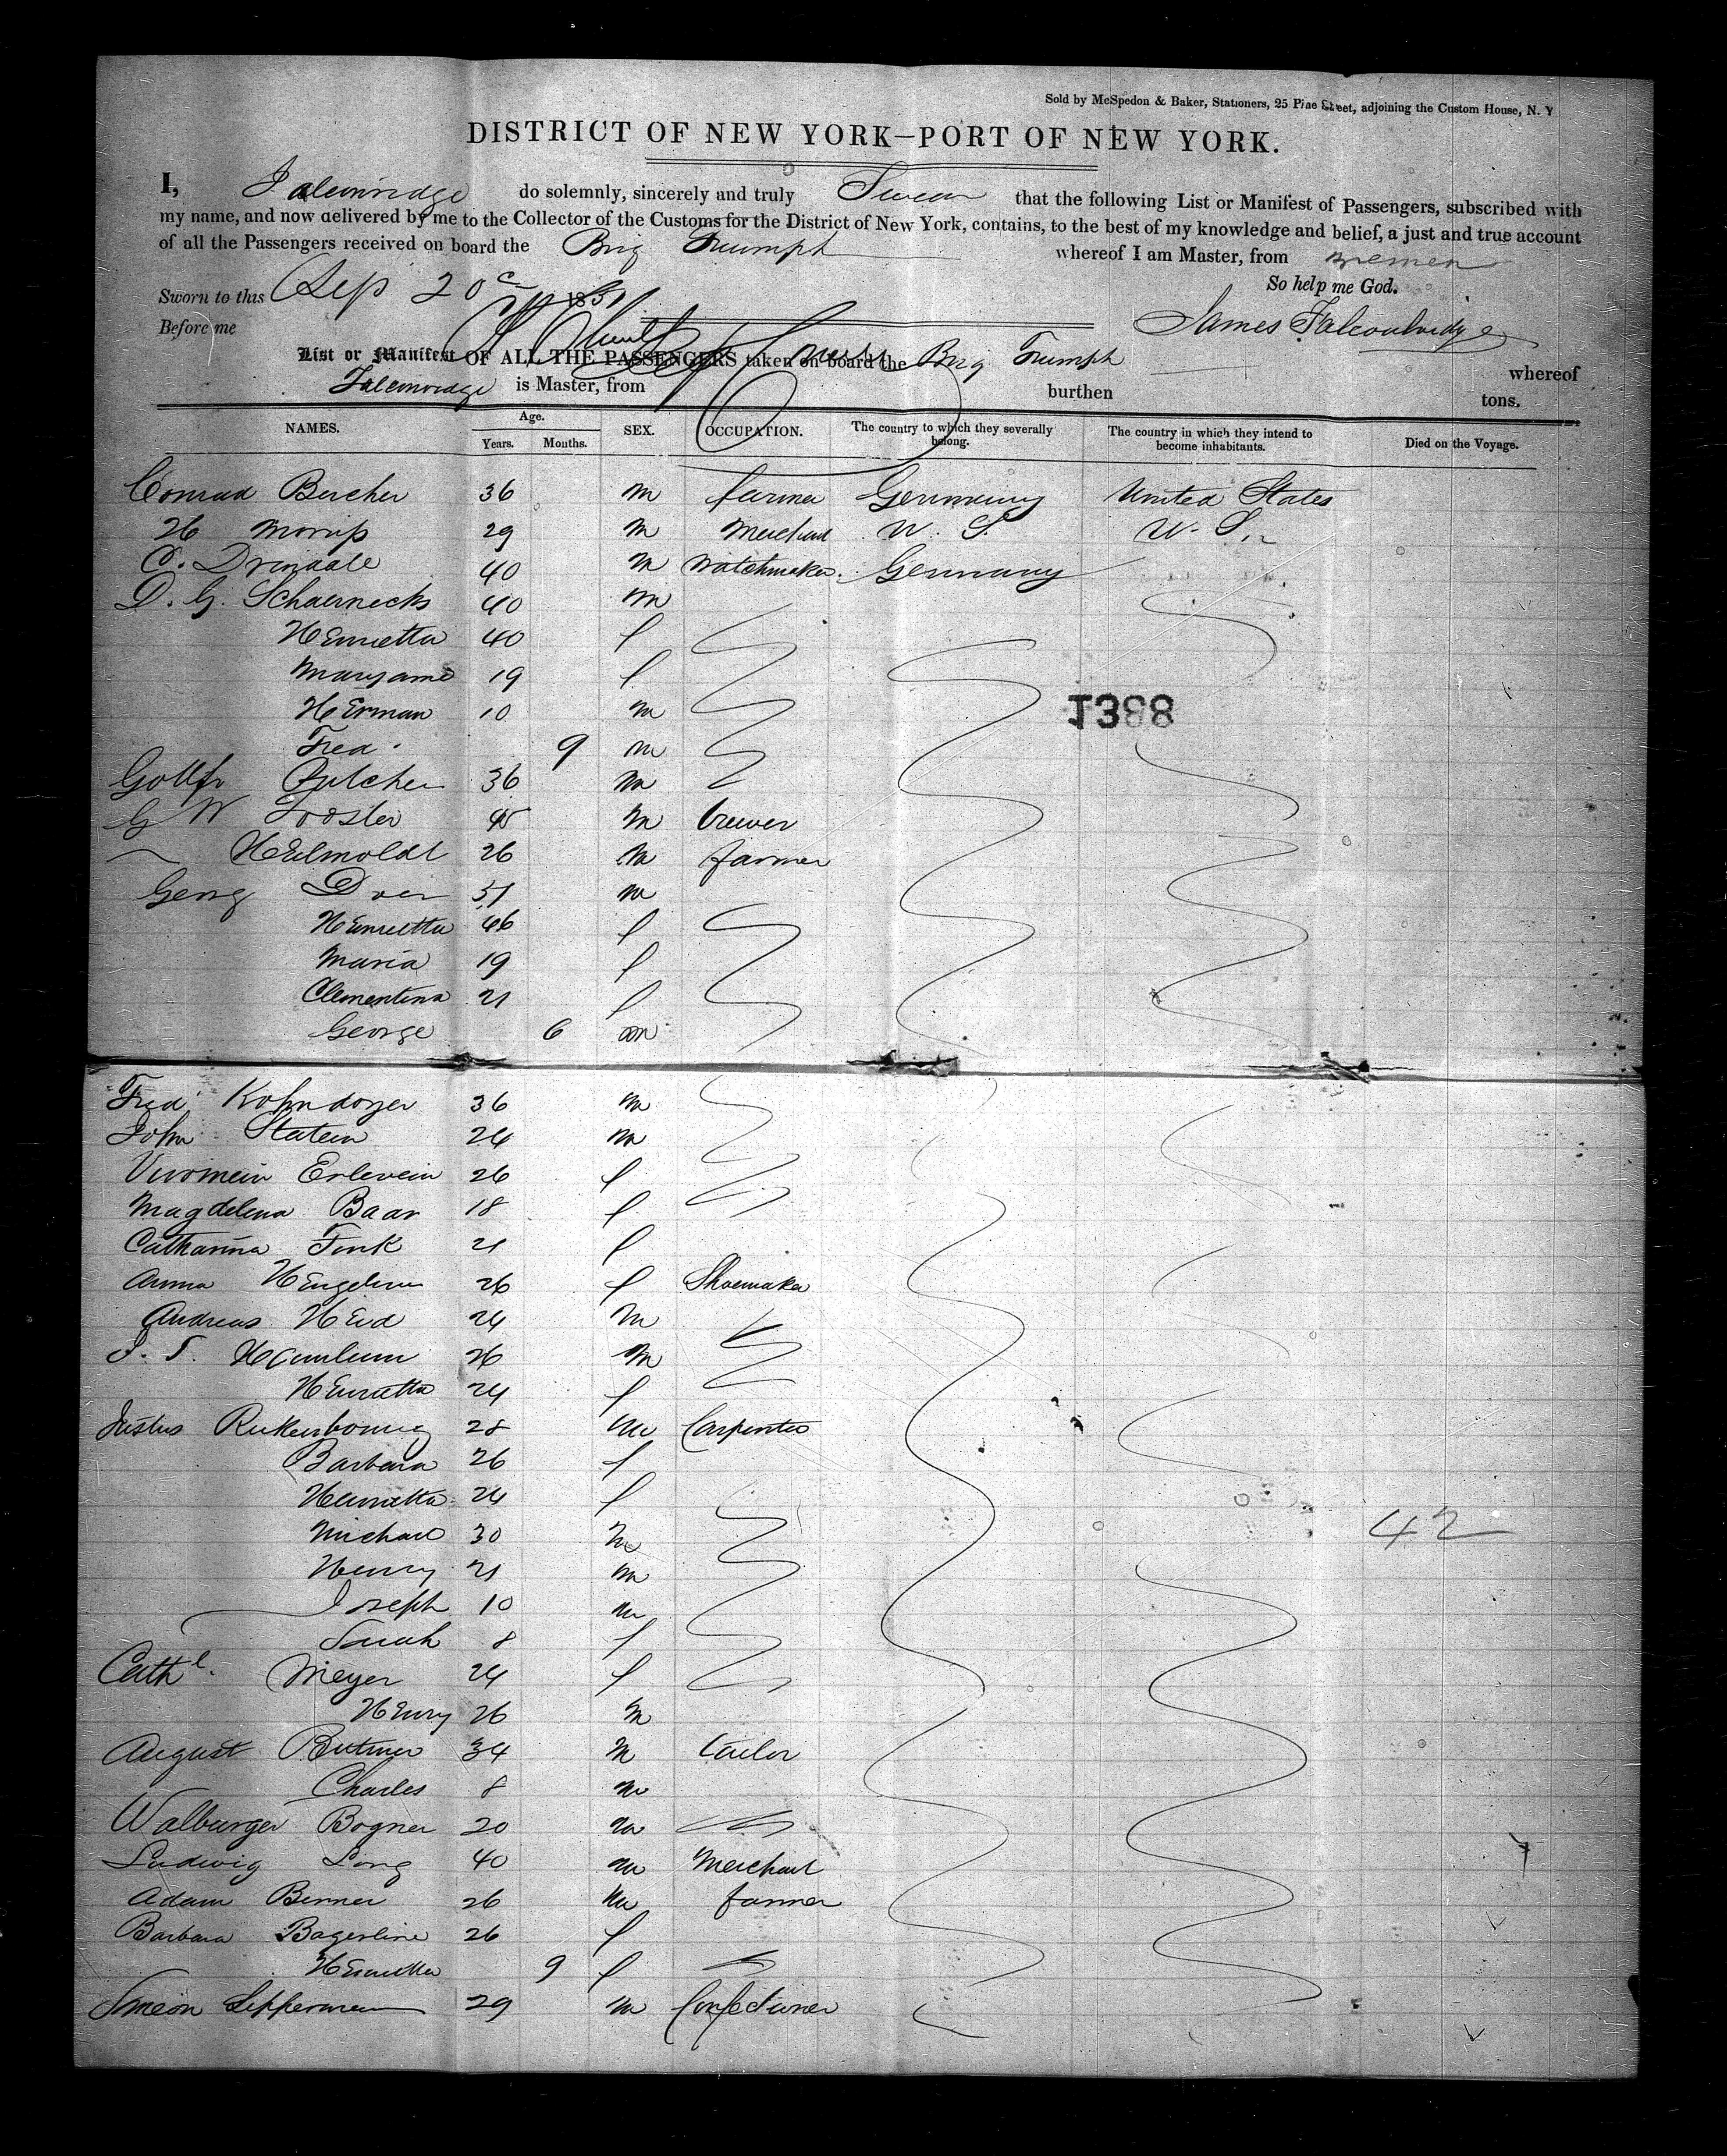 Sold by McSpedon & Baker, Stationers, 25 Pine Street, adjoining the Custom House, N. Y
DISTRICT OF NEW YORK—PORT OF NEW YORK.
I, do solemnly, sincerely and truly Swear that the following List or Manifest of Passengers, subscribed with
my name, and now delivered by me to the Collector of the Customs for the District of New York, contains, to the best of my knowledge and belief, a just and true account
of all the Passengers received on board the Brig Triumph whereof I am Master, from Bremen
So help me God.
Sworn to this Sep 20 1851
Before me James
List or Manifest OF ALL THE PASSENGERS taken on board the Brig Triumph whereof
is Master, from burthen tons.
NAMES. Age. Years. Months. SEX. OCCUPATION. The country to which they severally belong. The country in which they intend to become inhabitants. Died on the Voyage.
Conrad Bercher 36 m farmer Germany United States
H Morris 29 m Merchant U. S. U. S.
C. 40 m Watchmaker Germany
D. G. 40 m
Henrietta 40 f
Maryanne 19 f
1388
Herman 10 m
Fred. 9 m
36 m
G W 45 m brewer
Helmoldt 26 m farmer
Georg 51 m
Henrietta 46 f
Maria 19 f
Clementina 21 f
George 6 m
Fred 36 m
John 24 m
26 f
Magdelena Baar 18 f
Catharina Fink 21 f
Anna 26 f Shoemaker
Andreas Heid 24 m
26 m
Henrietta 24 f
Justus 28 m Carpenter
Barbara 26 f
Henrietta 24 f
Michael 30 m
42
Henry 21 m
Joseph 10 m
Sarah 8 f
Meyer 24 f
Henry 26 m
August 34 m tailor
Charles 8 m
Walburger Bogner 20 m
Ludwig Long 40 m Merchant
Adam Benner 26 m farmer
Barbara Bagerline 26 f
Henrietta 9 f
Simeon 29 m Confectioner